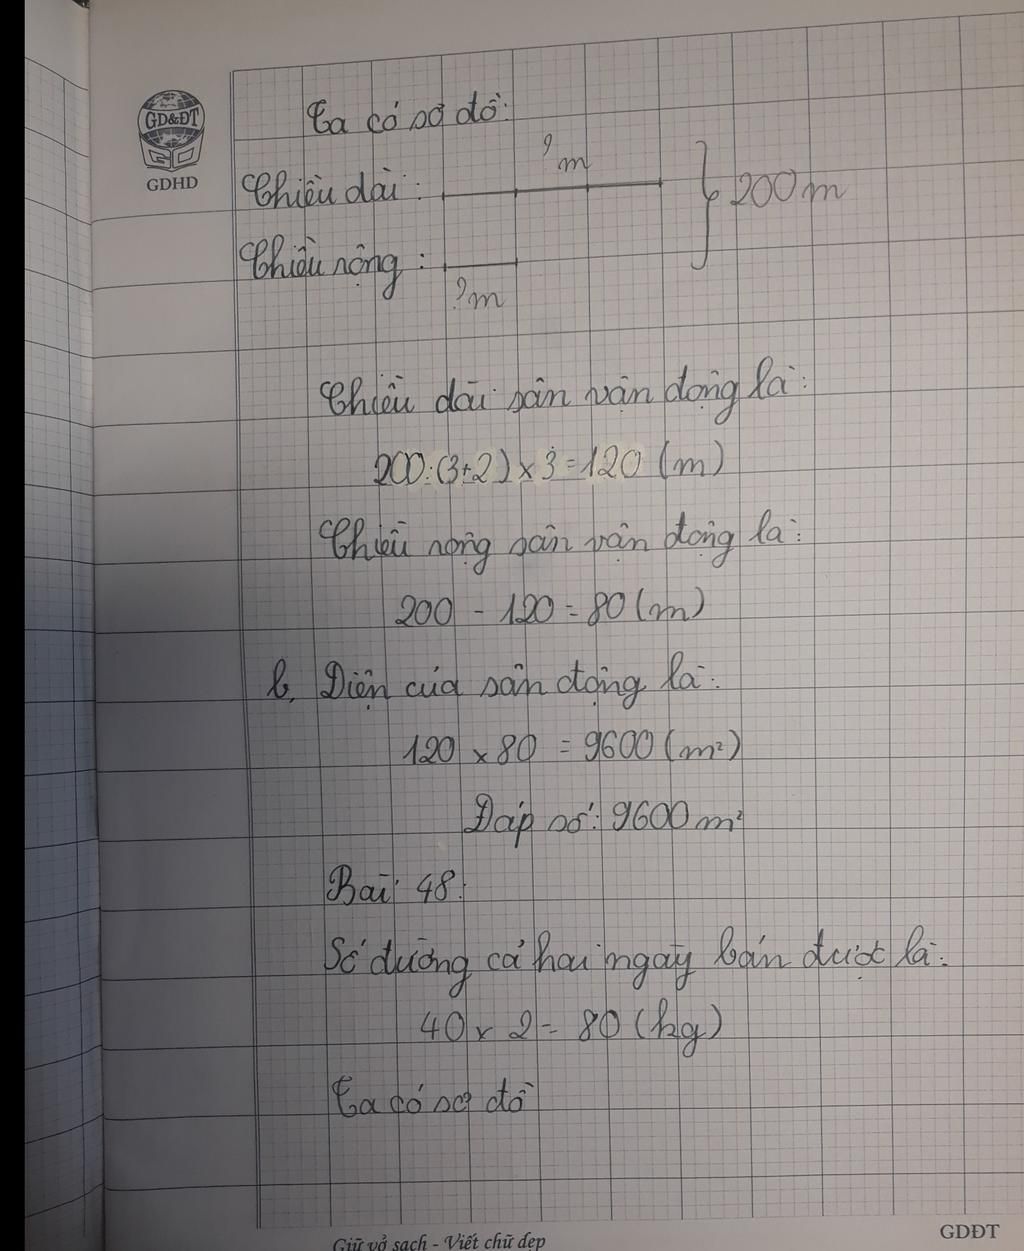 GD&ĐT
GDHD
Ta có sơ đồ:
? m
Chiều dài:
200 m
Chiều rộng:
? m
Chiều dài sân vận động là:
200:(3+2)x3=120 (m)
Chiều rộng sân vận động là:
200 - 120 = 80 (m)
b, Diện của sân động là:
120 x 80 = 9600 (m²)
Đáp số: 9600 m²
Bài 48:
Số đường cả hai ngày bán được là:
40 x 2 = 80 (kg)
Ta có sơ đồ
Giữ vở sạch - Viết chữ đẹp
GDĐT